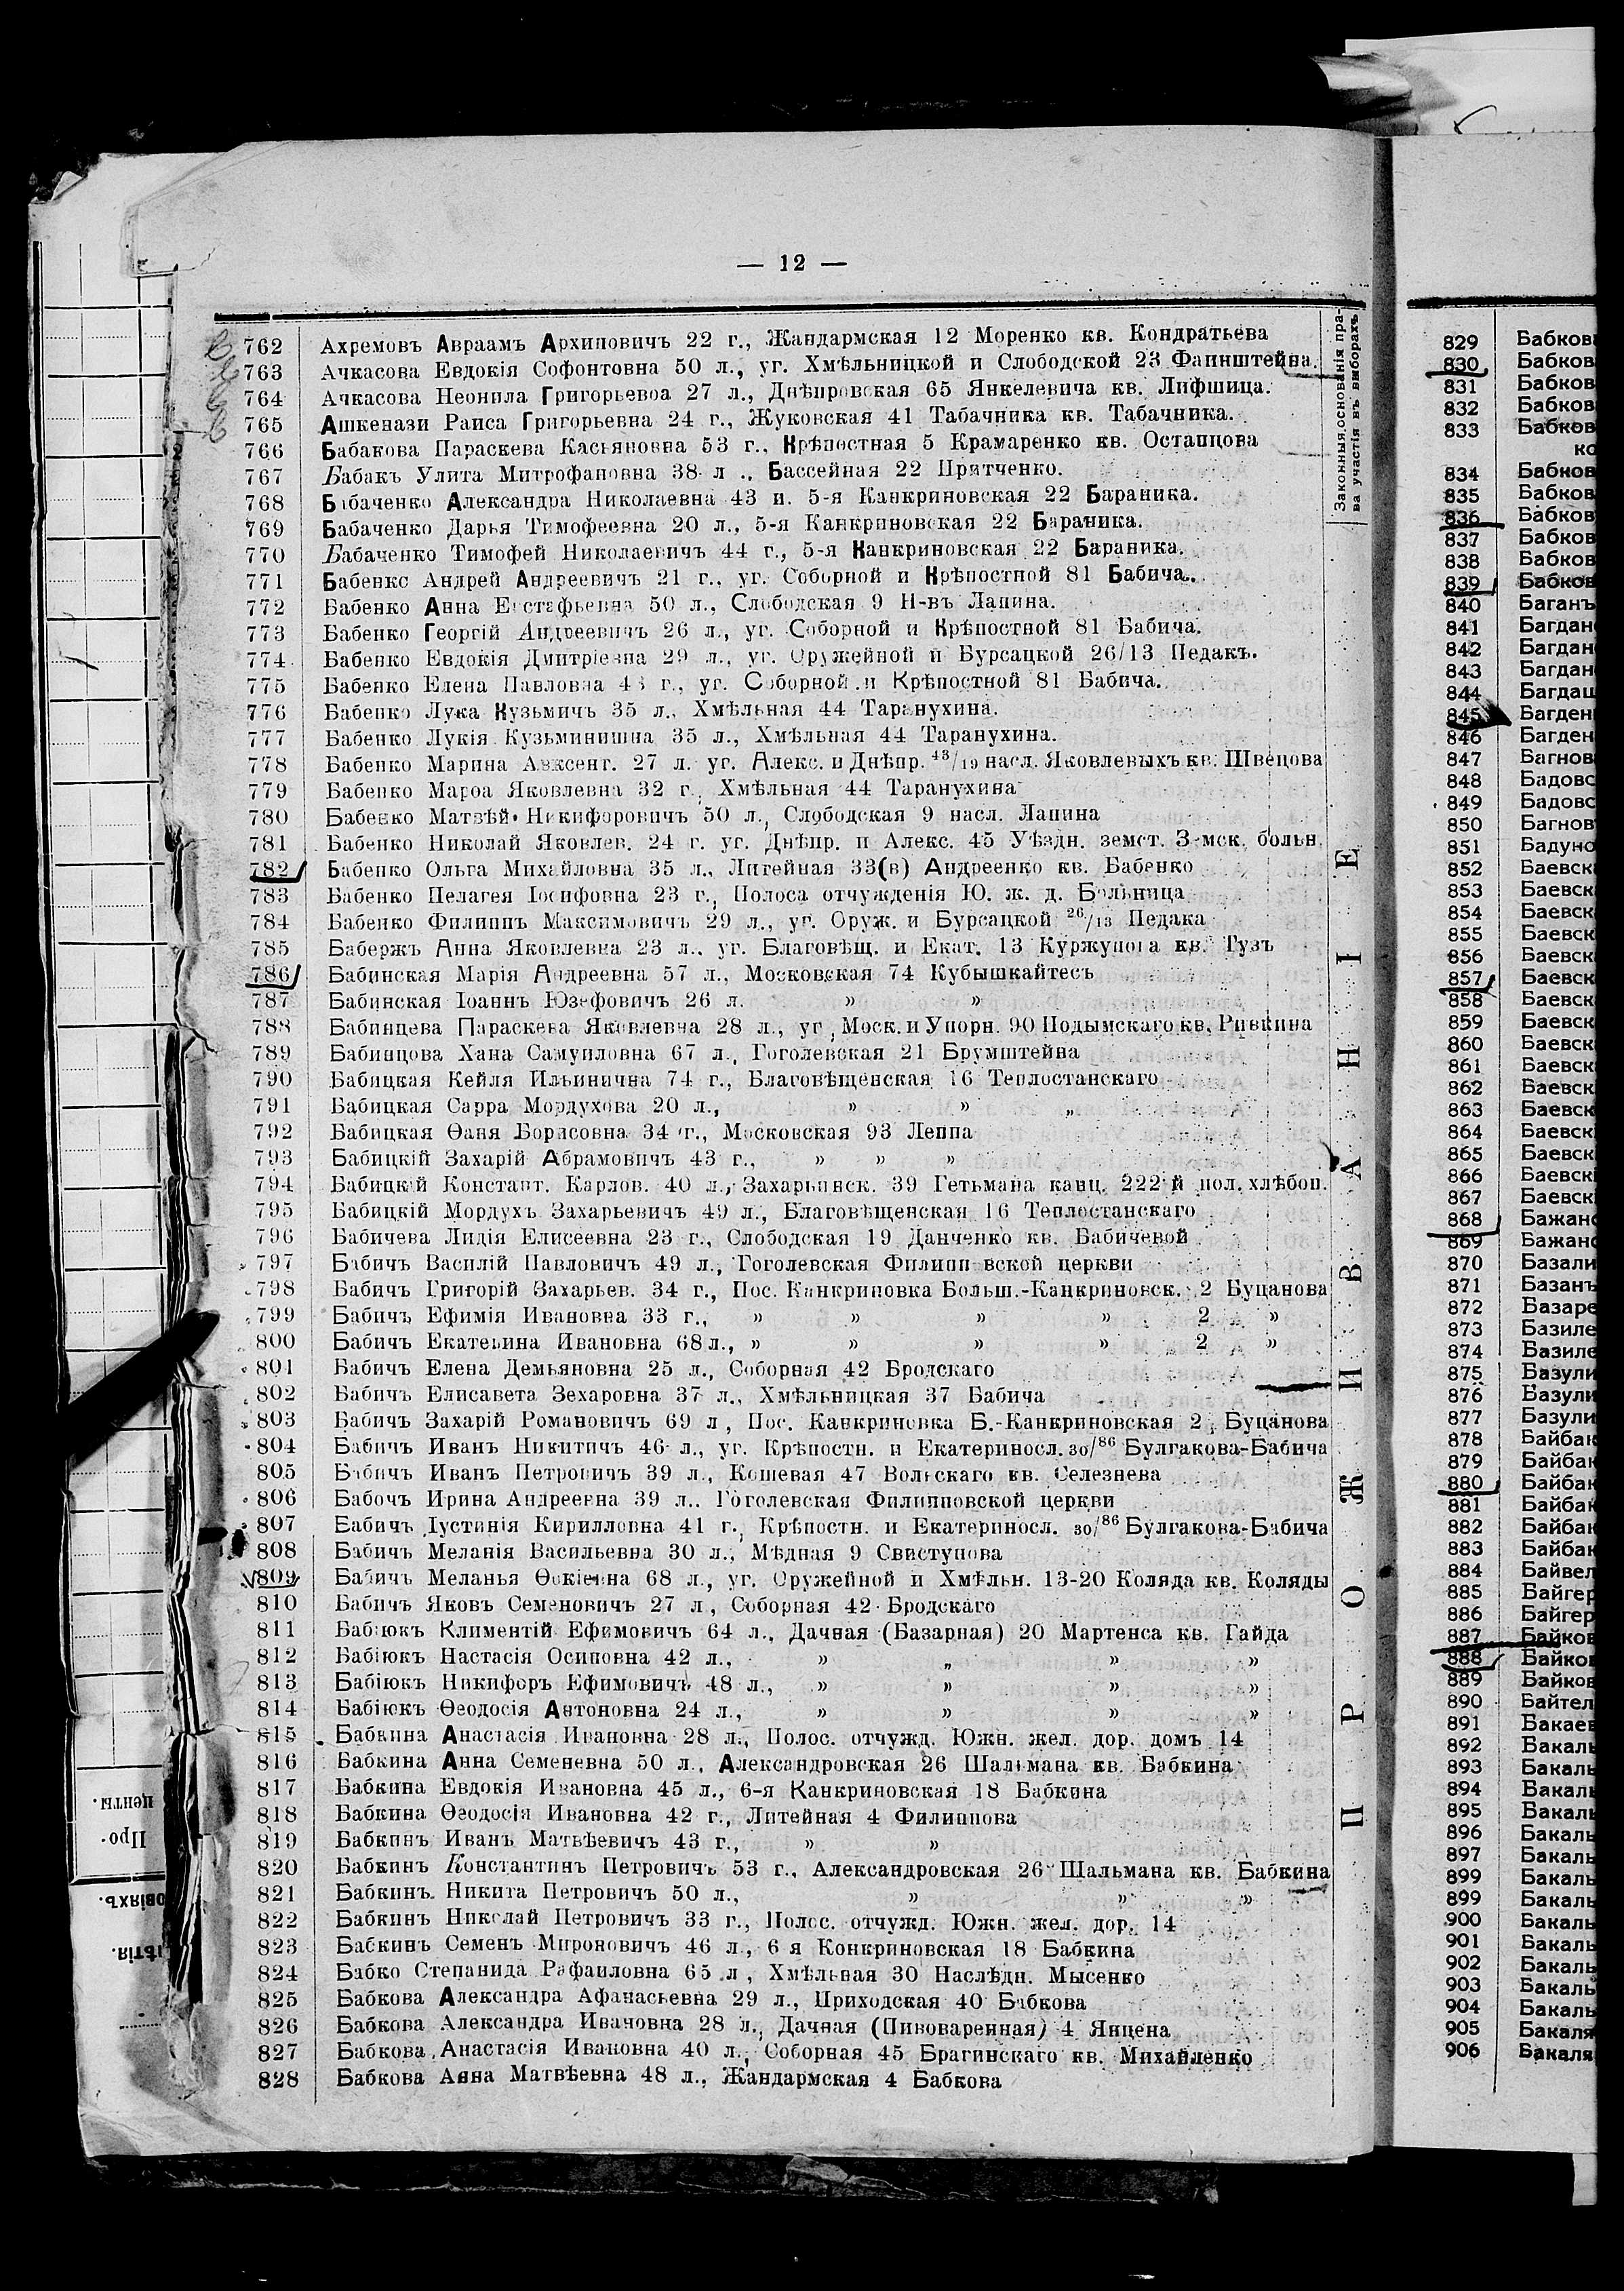 — 12 —
Законныя основанія пра-
ва участія въ выборахъ
ПРОЖИВАНІЕ
762 Ахремовъ Авраамъ Архиповичъ 22 г., Жандармская 12 Моренко кв. Кондратьева
763 Ачкасова Евдокія Софонтовна 50 л., уг. Хмѣльницкой и Слободской 23 Фаинштейна.
764 Ачкасова Неонила Григорьевоа 27 л., Днѣпровская 65 Янкелевича кв. Лифшица.
765 Ашкенази Раиса Григорьевна 24 г., Жуковская 41 Табачника кв. Табачника.
766 Бабакова Параскева Касьяновна 53 г., Крѣпостная 5 Крамаренко кв. Остапцова
767 Бабакъ Улита Митрофановна 38 л .. Бассейная 22 Притченко.
768 Бабаченко Александра Николаевна 43 и. 5-я Канкриновская 22 Бараника.
769 Бабаченко Дарья Тимофеевна 20 л., 5-я Канкриновская 22 Бараника.
770 Бабаченко Тимофей Николаевичъ 44 г., 5-я Канкриновская 22 Бараника.
771 Бабенкс Андрей Андреевичъ 21 г., уг. Соборной и Крѣпостной 81 Бабича.
772 Бабенко Анна Евстафьевна 50 л., Слободская 9 Н-въ Лапина.
773 Бабенко Георгій Андреевичъ 26 л., уг. Соборной и Крѣпостной 81 Бабича.
774 Бабенко Евдокія Дмитріевна 29 л., уг. Оружейной и Бурсацкой 26/13 Педакъ.
775 Бабенко Елена Павловна 43 г., уг. Соборной и Крѣпостной 81 Бабича.
776 Бабенко Лука Кузьмичъ 35 л., Хмѣльная 44 Таранухина.
777 Бабенко Лукія Кузьминишна 35 л., Хмѣльная 44 Таранухина.
778 Бабенко Марина Авксент. 27 л. уг. Алекс. и Днѣпр. 43/19 насл. Яковлевыхъ кв. Швецова
779 Бабенко Мароа Яковлевна 32 г., Хмѣльная 44 Таранухина
780 Бабенко Матвѣй Никифоровичъ 50 л., Слободская 9 насл. Лапина
781 Бабенко Николай Яковлев. 24 г. уг. Днѣпр. и Алекс. 45 Уѣздн. земст. Земск. больн.
782 Бабенко Ольга Михайловна 35 л., Литейная 33(в) Андреенко кв. Бабенко
783 Бабенко Пелагея Іосифовна 23 г., Полоса отчужденія Ю. ж. д. Больница
784 Бабенко Филиппъ Максимовичъ 29 л., уг. Оруж. и Бурсацкой 26/13 Педака
785 Бабержъ Анна Яковлевна 23 л., уг. Благовѣщ. и Екат. 13 Куржупова кв. Тузъ
786 Бабинская Марія Андреевна 57 л., Московская 74 Кубышкайтесъ
787 Бабинская Іоаннъ Юзефовичъ 26 л. » »
788 Бабинцева Параскева Яковлевна 28 л., уг. Моск. и Упорн. 90 Подымскаго кв. Ривкина
789 Бабинцова Хана Самуиловна 67 л., Гоголевская 21 Брумштейна
790 Бабицкая Кейля Ильинична 74 г., Благовѣщенская 16 Теплостанскаго
791 Бабицкая Сарра Мордухова 20 л., » » „
792 Бабицкая Ѳаня Борисовна 34 г., Московская 93 Леппа
793 Бабицкій Захарій Абрамовичъ 43 г., » » »
794 Бабицкій Констант. Карлов. 40 л., Захарьинск. 39 Гетьмана канц. 222-й пол. хлѣбоп.
795 Бабицкій Мордухъ Захарьевичъ 49 л., Благовѣщенская 16 Теплостанскаго
796 Бабичева Лидія Елисеевна 23 г., Слободская 19 Данченко кв. Бабичевой
797 Бабичъ Василій Павловичъ 49 л., Гоголевская Филипп вской церкви
798 Бабичъ Григорій Захарьев. 34 г., Пос. Канкриповка Больш.-Канкриновск. 2 Буцанова
799 Бабичъ Ефимія Ивановна 33 г., » » » » 2 »
800 Бабичъ Екатерина Ивановна 68 л., » » » » 2 »
801 Бабичъ Елена Демьяновна 25 л., Соборная 42 Бродскаго
802 Бабичъ Елисавета Зехаровна 37 л., Хмѣльницкая 37 Бабича
803 Бабичъ Захарій Романовичъ 69 л, Пос. Канкриновка Б.-Канкриновская 2, Буцанова
804 Бабичъ Иванъ Никитичъ 46 л., уг. Крѣпостн. и Екатериносл. 30/86 Булгакова-Бабича
805 Бабичъ Иванъ Петровичъ 39 л., Кошевая 47 Вольскаго кв. Селезнева
806 Бабочъ Ирина Андреевна 39 л.. Гоголевская Филипповской церкви
807 Бабичъ Іустинія Кирилловна 41 г., Крѣпостн. и Екатериносл. 30/86 Булгакова-Бабича
808 Бабичъ Меланія Васильевна 30 л., Мѣдная 9 Свистунова
809 Бабичъ Меланья Ѳокіевна 68 л., уг. Оружейной и Хмѣльн. 13-20 Коляда кв. Коляды
810 Бабичъ Яковъ Семеновичъ 27 л, Соборная 42 Бродскаго
811 Бабіюкъ Климентій Ефимовичъ 64 л., Дачная (Базарная) 20 Мартенса кв. Гайда
812 Бабіюкъ Настасія Осиповна 42 л., » „ » »
813 Бабіюкъ Никифоръ Ефимовичъ 48 л., » » » »
814 Бабіюкъ Ѳеодосія Автоновна 24 л., » » » »
815 Бабкина Анастасія Ивановна 28 л., Полос. отчужд. Южн. жел. дор. домъ 14
816 Бабкина Анна Семеневна 50 л., Александровская 26 Шальмана кв. Бабкина
817 Бабкина Евдокія Ивановна 45 л., 6-я Канкриновская 18 Бабкина
818 Бабкина Ѳеодосія Ивановна 42 г., Литейная 4 Филиппова
819 Бабкинъ Иванъ Матвѣевичъ 43 г., » »
820 Бабкинъ Константинъ Петровичъ 53 г., Александровская 26 Шальмана кв. Бабкина
821 Бабкинъ Никита Петровичъ 50 л., » » »
822 Бабкинъ Николай Петровичъ 33 г., Полос. отчужд. Южн. жел. дор. 14
823 Бабкинъ Семенъ Мироновичъ 46 л., 6 я Конкриновская 18 Бабкина
824 Бабко Степанида Рафаиловна 65 л, Хмѣльная 30 Наслѣдн. Мысенко
825 Бабкова Александра Афанасьевна 29 л., Приходская 40 Бабкова
826 Бабкова Александра Ивановна 28 л., Дачная (Пивоваренная) 4 Янцена
827 Бабкова Анастасія Ивановна 40 л., Соборная 45 Брагинскаго кв. Михайленко
828 Бабкова Анна Матвѣевна 48 л., Жандармская 4 Бабкова
829 Бабков
830 Бабков
831 Бабков
832 Бабков
833 Бабков
ко
834 Бабков
835 Бабков
836 Бабков
837 Бабков
838 Бабков
839 Бабков
840 Баганъ
841 Багдан
842 Багдан
843 Багдан
844 Багдаш
845 Багден
846 Багден
847 Вагнов
848 Бадовс
849 Бадовс
850 Багнов
851 Бадуно
852 Баевск
853 Баевск
854 Баевск
855 Баевск
856 Баевск
857 Баевск
858 Баевск
859 Баевск
860 Баевск
861 Баевск
862 Баевск
863 Баевск
864 Баевск
865 Баевск
866 Баевск
867 Баевск
868 Бажано
869 Бажано
870 Базали
871 Базанъ
872 Базаре
873 Базиле
874 Базиле
875 Базули
876 Базули
877 Базули
878 Байбак
879 Байбак
880 Байбак
881 Байбак
882 Байбак
883 Байбак
884 Байвел
885 Байгер
886 Байгер
887 Байков
888 Байков
889 Байков
890 Байтел
891 Бакаев
892 Бакаль
893 Бакаль
894 Бакаль
895 Бакаль
896 Бакаль
897 Бакаль
899 Бакаль
899 Бакаль
900 Бакаль
901 Бакаль
902 Бакаль
903 Бакаль
904 Бакаль
905 Бакаля
906 Бакаля
Про-
центы.